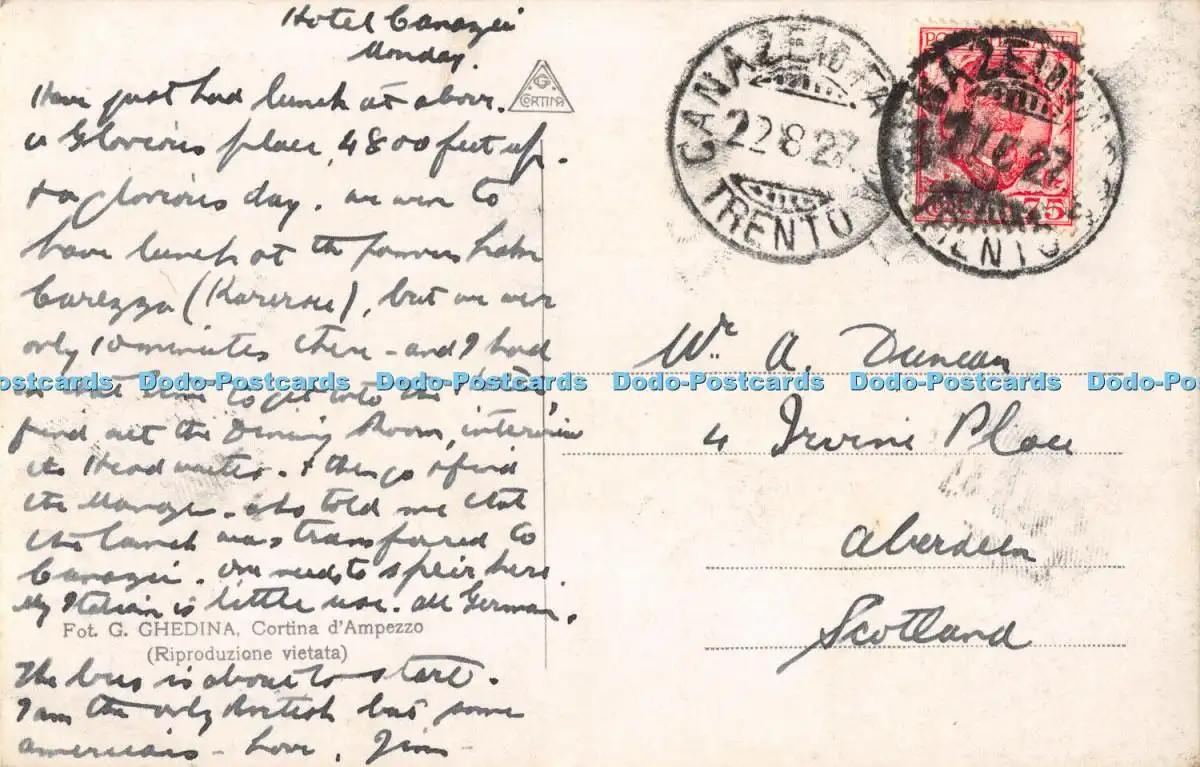 Hotel Canazei
Monday.
Have just had lunch at above.
a Glorious place, 4800 feet up.
+ a glorious day. we were to
have lunch at the famous
Carezza (Karersee), but we were
only 10 minutes there - and I had
in that time to get into the Hotel,
find out the Dining Room, interview
its Head waiter. & then go & find
the Manager. who told me that
the lunch was transferred to
Canazei. one needs to speir here.
My Italian is little use. all German.
Fot. G. GHEDINA, Cortina d'Ampezzo
(Riproduzione vietata)
The bus is about to start.
I am the only British but some
americans - Love, Jim -
G.
CORTINA
CANAZEI
22 8 27
TRENTO
POSTE ITALIANE
75
TRENTO
A. Duncan
4 Irvine Place
Aberdeen
Scotland
Dodo-Postcards Dodo-Postcards Dodo-Postcards Dodo-Postcards Dodo-Postcards